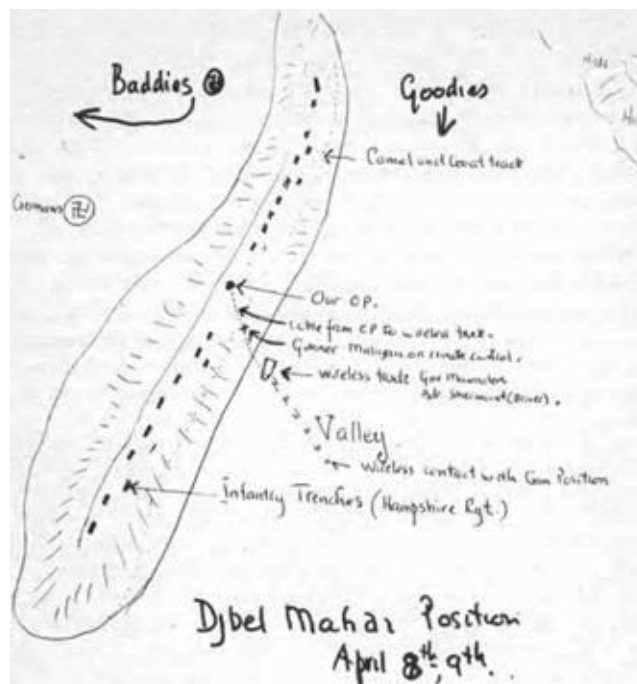 Baddies 卐
Goodies
Camel and Goat track
Germans 卐
Our O.P.
Line from OP to wireless truck.
Gunner Milligan on remote control.
Wireless truck Gnr
(Driver).
Valley
Wireless contact with Gun Position
Infantry Trenches (Hampshire Rgt.)
Djbel Mahdi Position
April 8th, 9th.